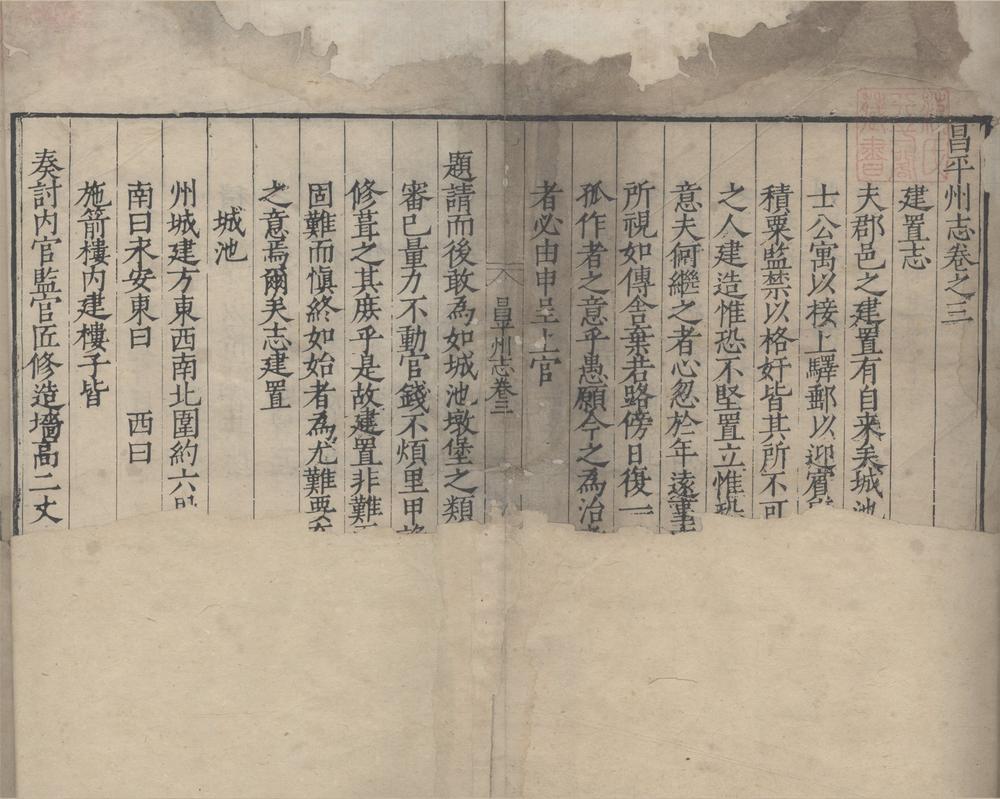 昌平州志卷之三
建置志
夫郡邑之建置有自来矣城池
士公寓以接上驛郵以迎賓
積粟監禁以格奸皆其所不可
之人建造惟恐不堅置立惟恐
意夫何繼之者心忽於年遠
所視如傳舍棄若路傍日復一
孤作者之意乎愚願今之為治者
者必由申呈上官
昌平州志卷三
題請而後敢為如城池墩堡之類
審已量力不動官錢不煩里甲
修葺之其庶乎是故建置非難
固難而慎終如始者為尤難要
之意焉爾矣志建置
城池
州城建方東西南北圍約六
南曰永安東曰 西曰
施箭樓內建樓子皆
奏討內官監官匠修造墻高二丈